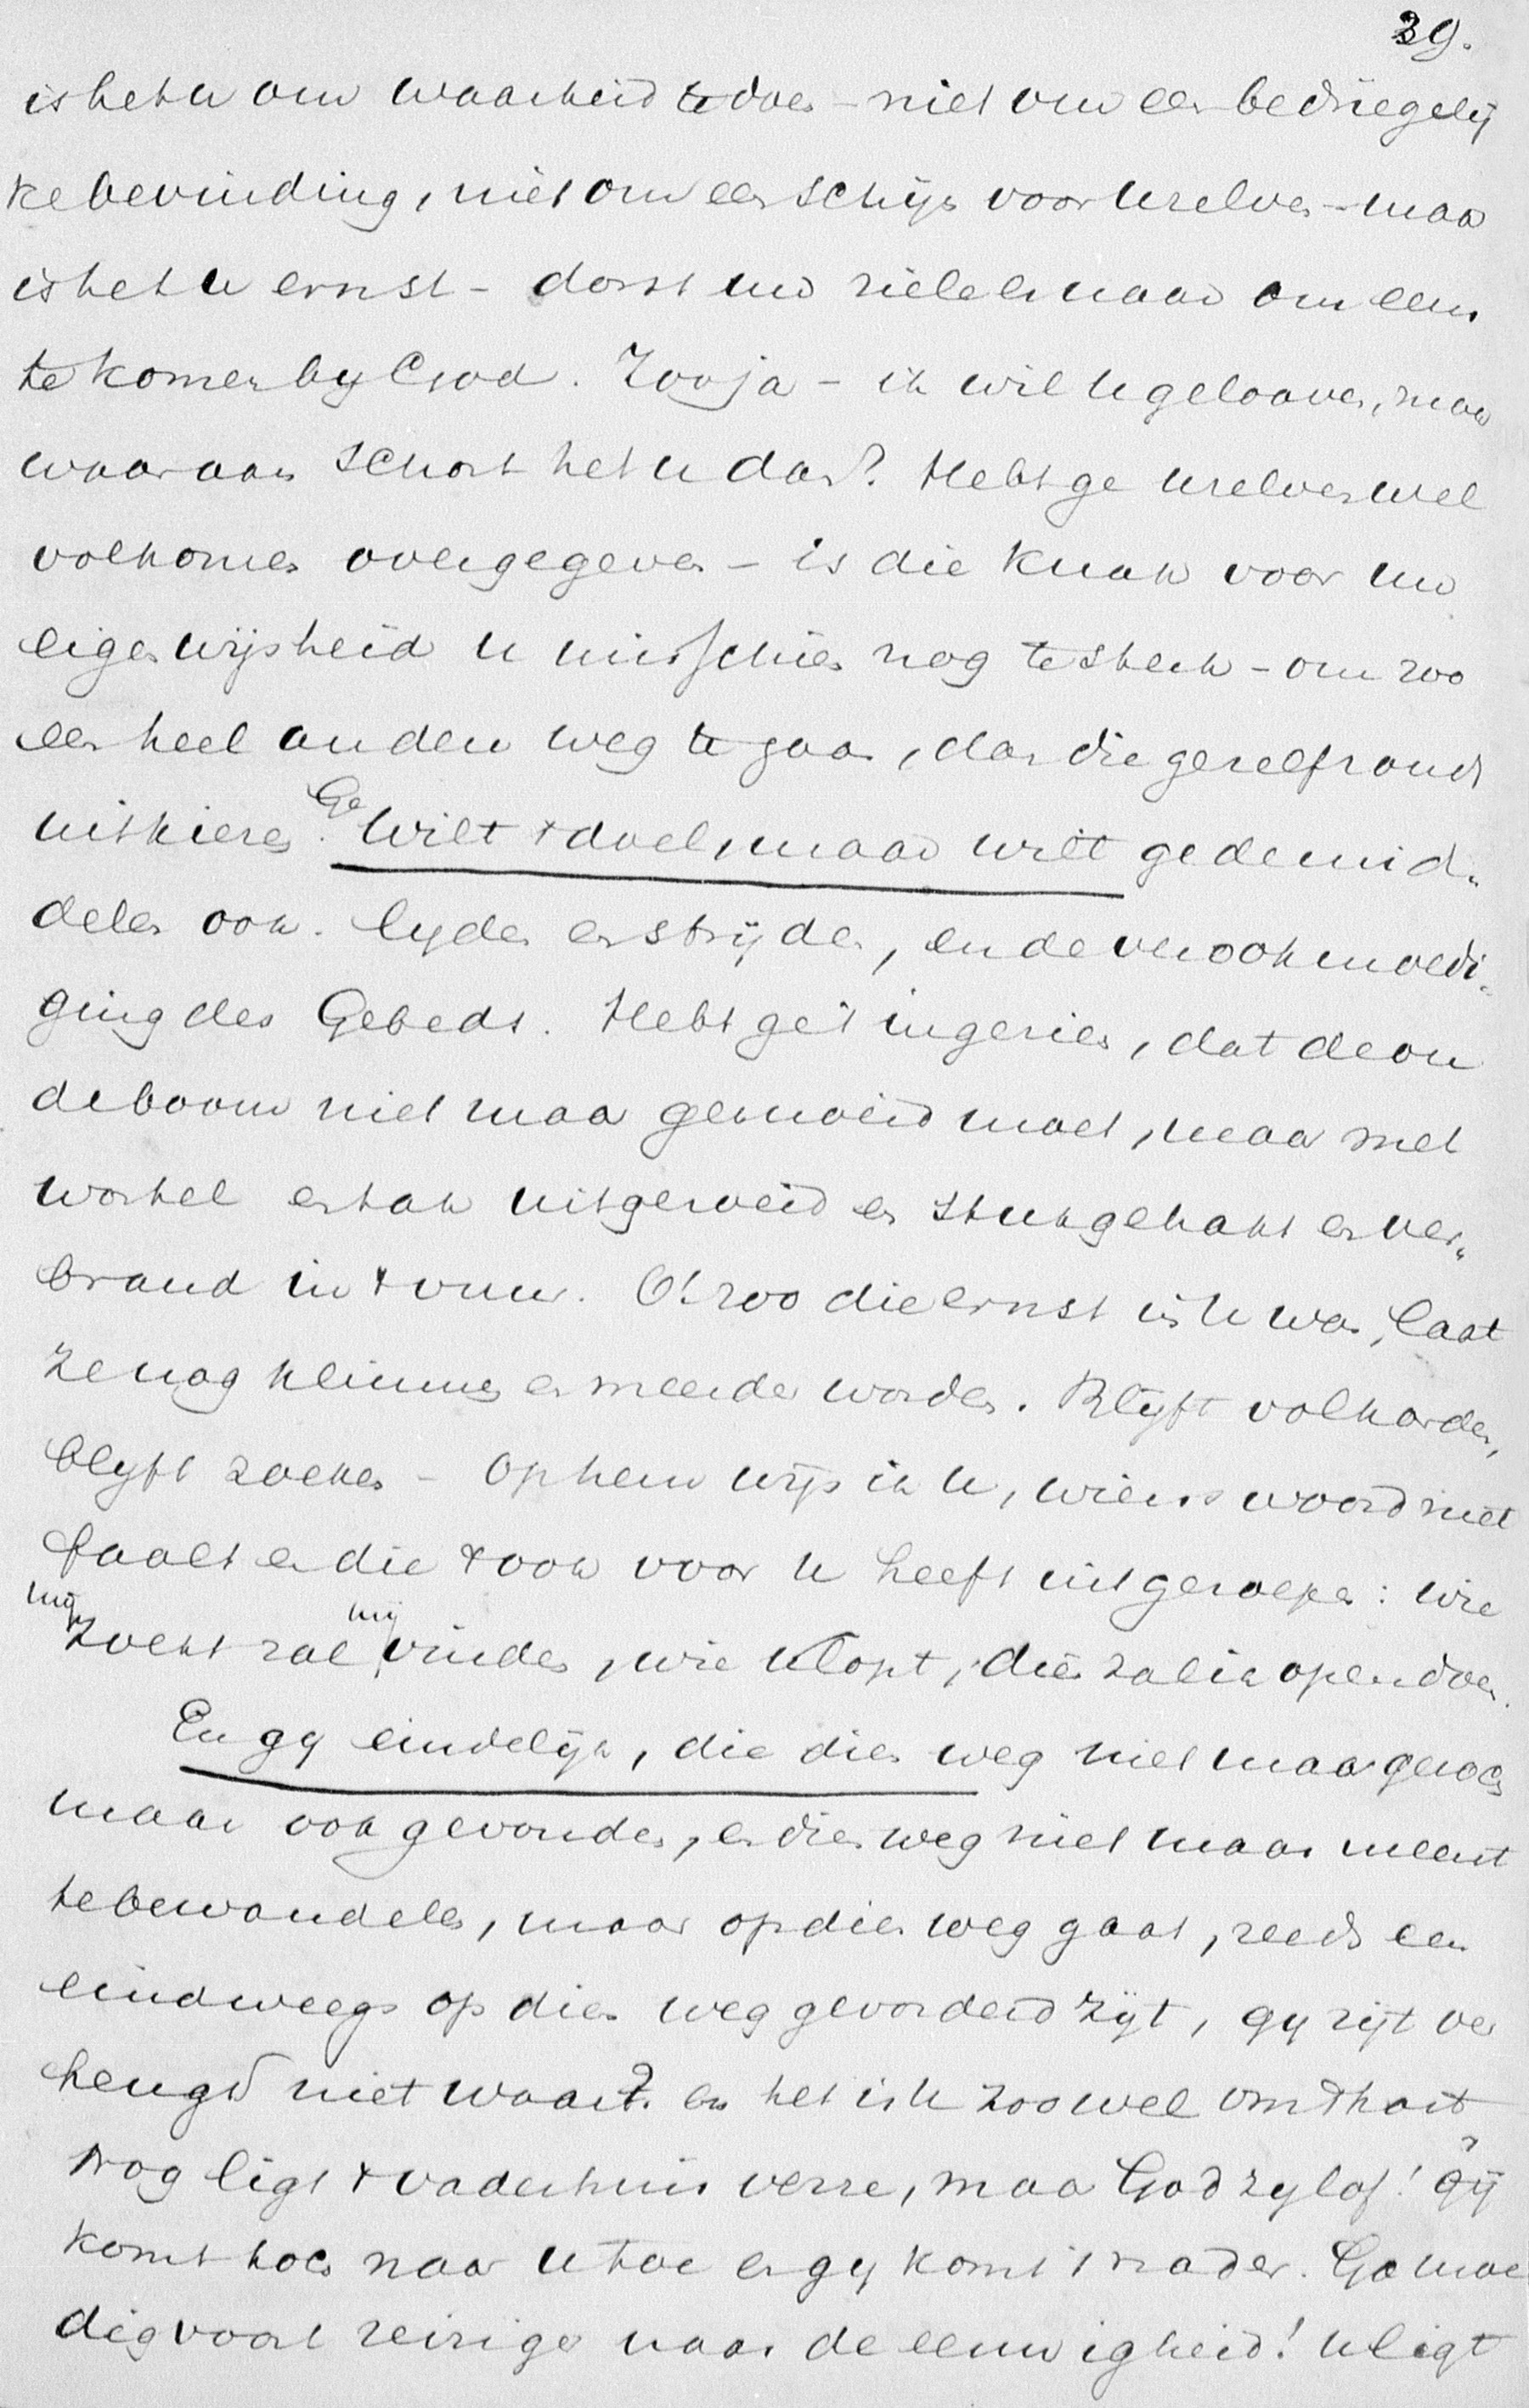 39.
is het u om waarheid te doen - niet om een bedriegelij
ke bevinding, niet om een schijn voor uzelven - maar
is het u ernst - dorst uw ziele er naar om eens
te komen by God. Zoo ja - ik wil u gelooven, maar
waaraan schort het u dan? Hebt ge uzelven wel
volkomen overgegeven - is die knak voor uw
eigen wijsheid u misschien nog te sterk - om zoo
een heel anderen weg te gaan, dan die ge zelf zoudt
uitkiezen. Ge wilt 't doel, maar wilt ge de mid„
delen ook. lyden en strijden, en de verootmoedi„
ging des Gebeds. Hebt ge 't ingezien, dat de ou
de boom niet maar gesnoeid moet, maar met
wortel en tak uitgeroeid en stukgehakt en ver„
brand in 't vuur. O! zoo die ernst in u was, laat
ze nog klimmen en meerder worden. Blyft volharden,
blyft zoeken - op hem wijs ik u, wiens woord niet
faalt en die 't ook voor u heeft uitgeroepen: wie
mij zoekt zal mij vinden, wie klopt, dien zal ik opendoen.
En gy eindelijk, die dien weg niet maar gezocht
maar ook gevonden, en dien weg niet maar meent
te bewandelen, maar op dien weg gaat, reeds een
eindweegs op dien weg gevorderd zijt, gy zijt ver
heugd niet waar? en het is u zoo wel om 't hart
Nog ligt 't vaderhuis verre, maar God zy lof! gij
komt toch naar u toe en gy komt 't nader. Ga moe
dig voort reiziger naar de eeuwigheid! U ligt